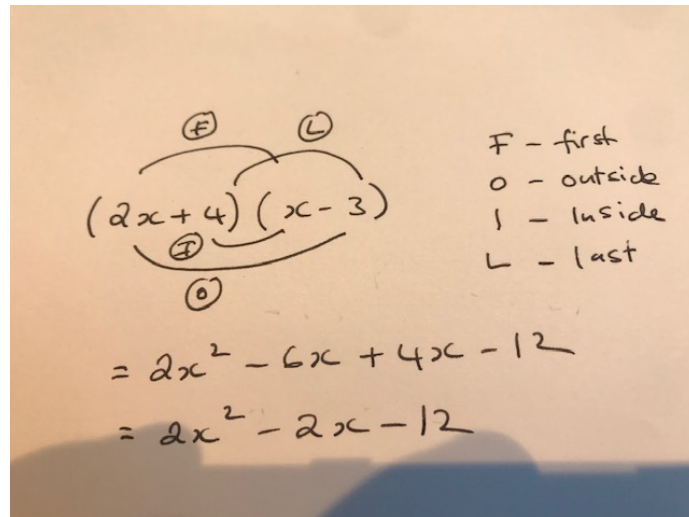 F L
(2x + 4) (x - 3)
I
O
F - first
O - outside
I - Inside
L - last
= 2x² - 6x + 4x - 12
= 2x² - 2x - 12